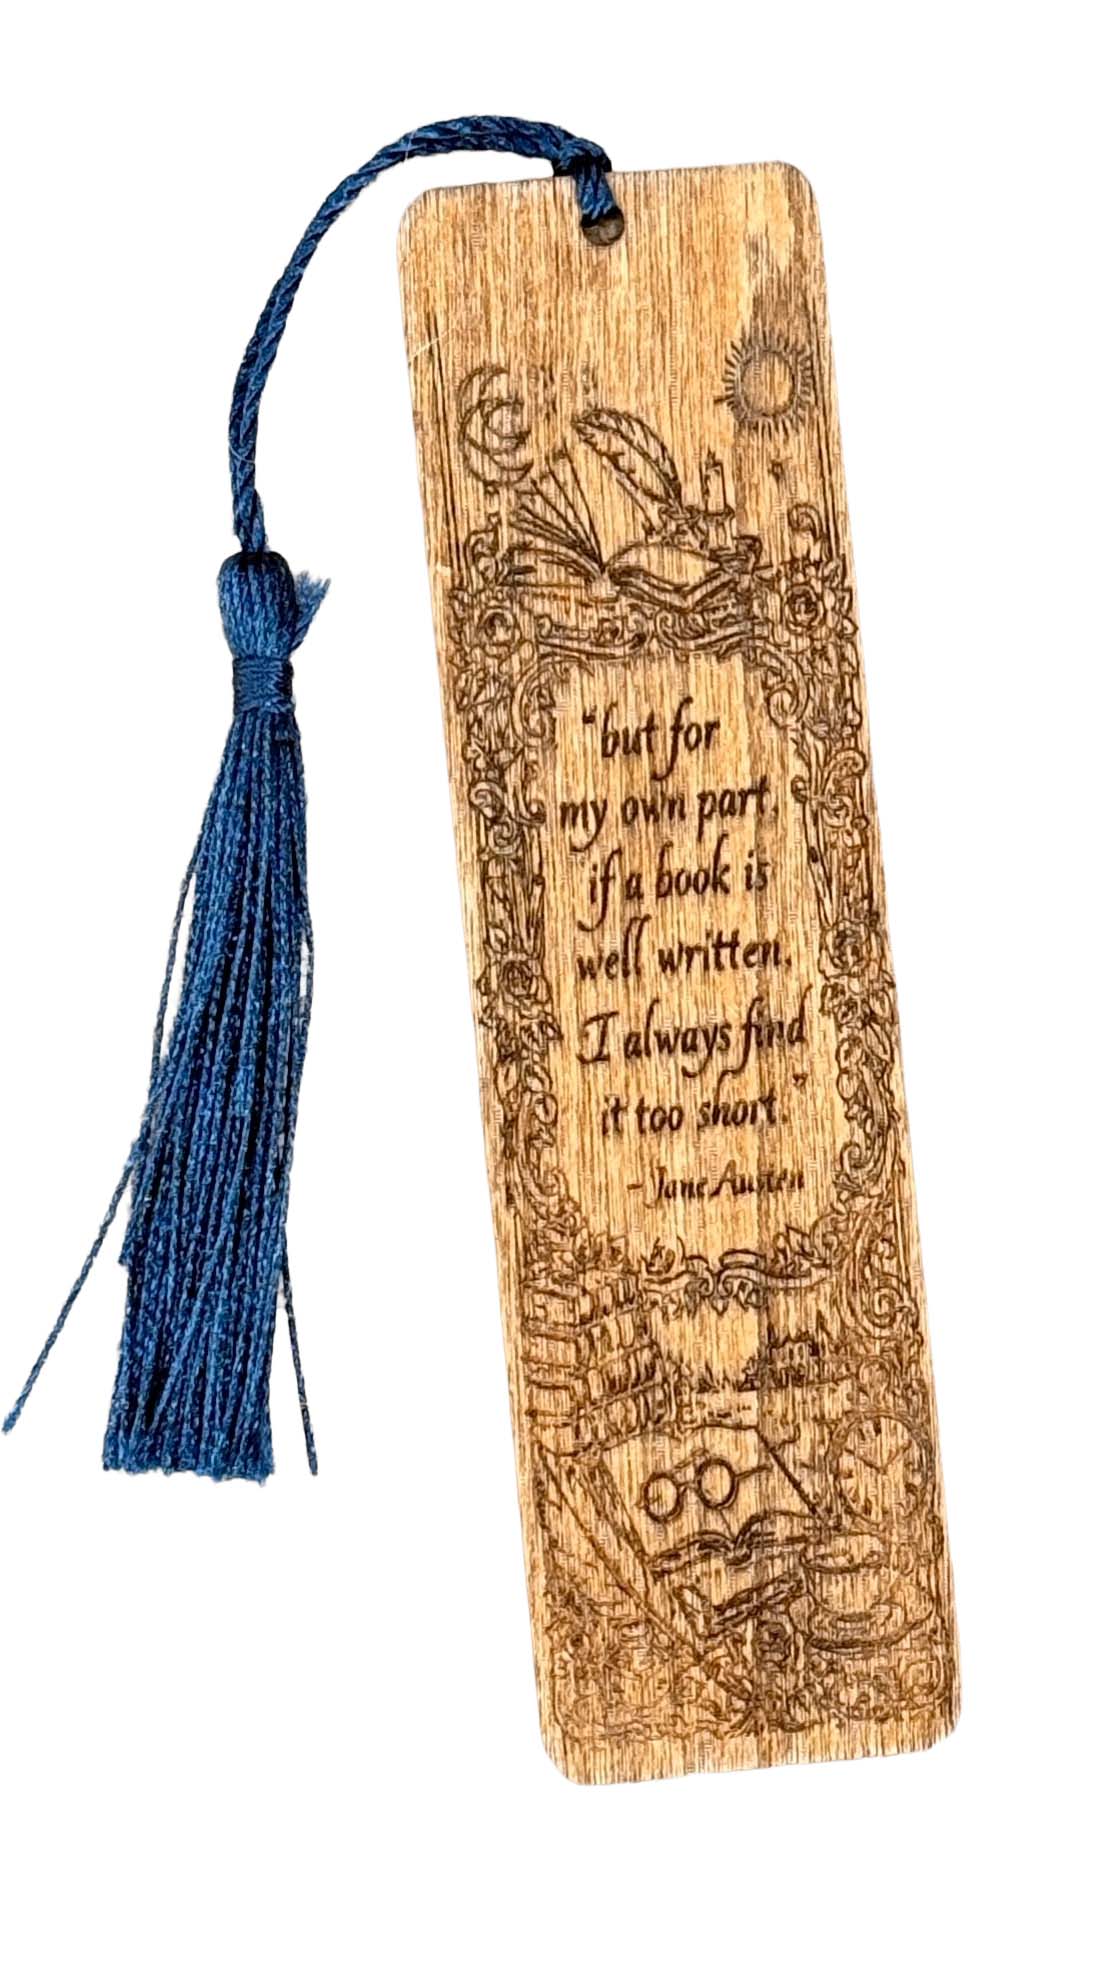 "but for
my own part,
if a book is
well written,
I always find
it too short."
- Jane Austen